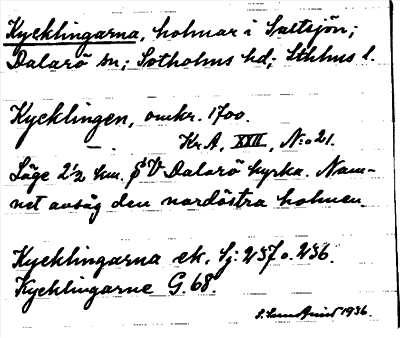 Kycklingarna, holmar i Saltsjön;
Dalarö sn; Sotholms hd; Sthlms l.
Kycklingen, omkr. 1700.
Kr.A, XXII, N:o 21.
Läge 2½ km. SV Dalarö kyrka. Nam-
net avsåg den nordöstra holmen.
Kycklingarna ek. Sj: 257 o. 256.
Kycklingarne G. 68.
1936.